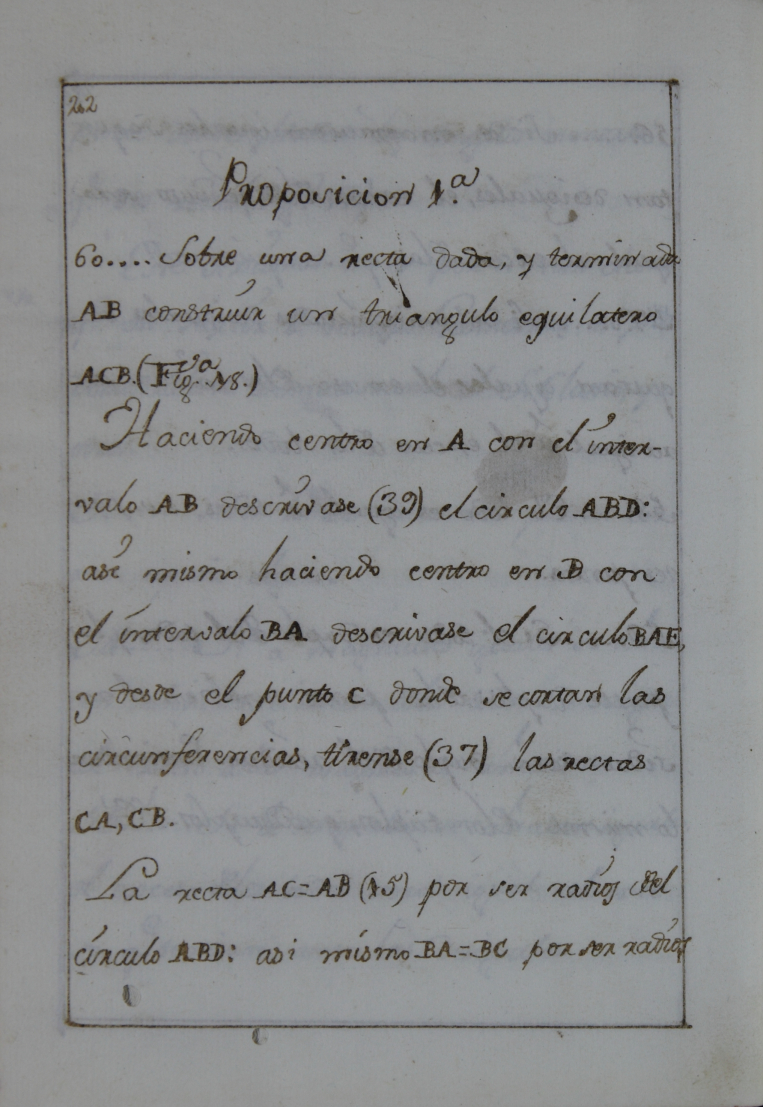 22
Proposicion 1.ª
60.... Sobre una recta dada, y terminada
AB construir un triangulo equilatero
ACB. (Fig.ª 18.)
Haciendo centro en A con el inter-
valo AB descrivase (39) el circulo ABD:
asi mismo haciendo centro en B con
el intervalo BA descrivase el circulo BAE,
y desde el punto C donde se cortan las
circunferencias, tirense (37) las rectas
CA, CB.
La recta AC=AB (15) por ser radios del
circulo ABD: asi mismo BA=BC por ser radios